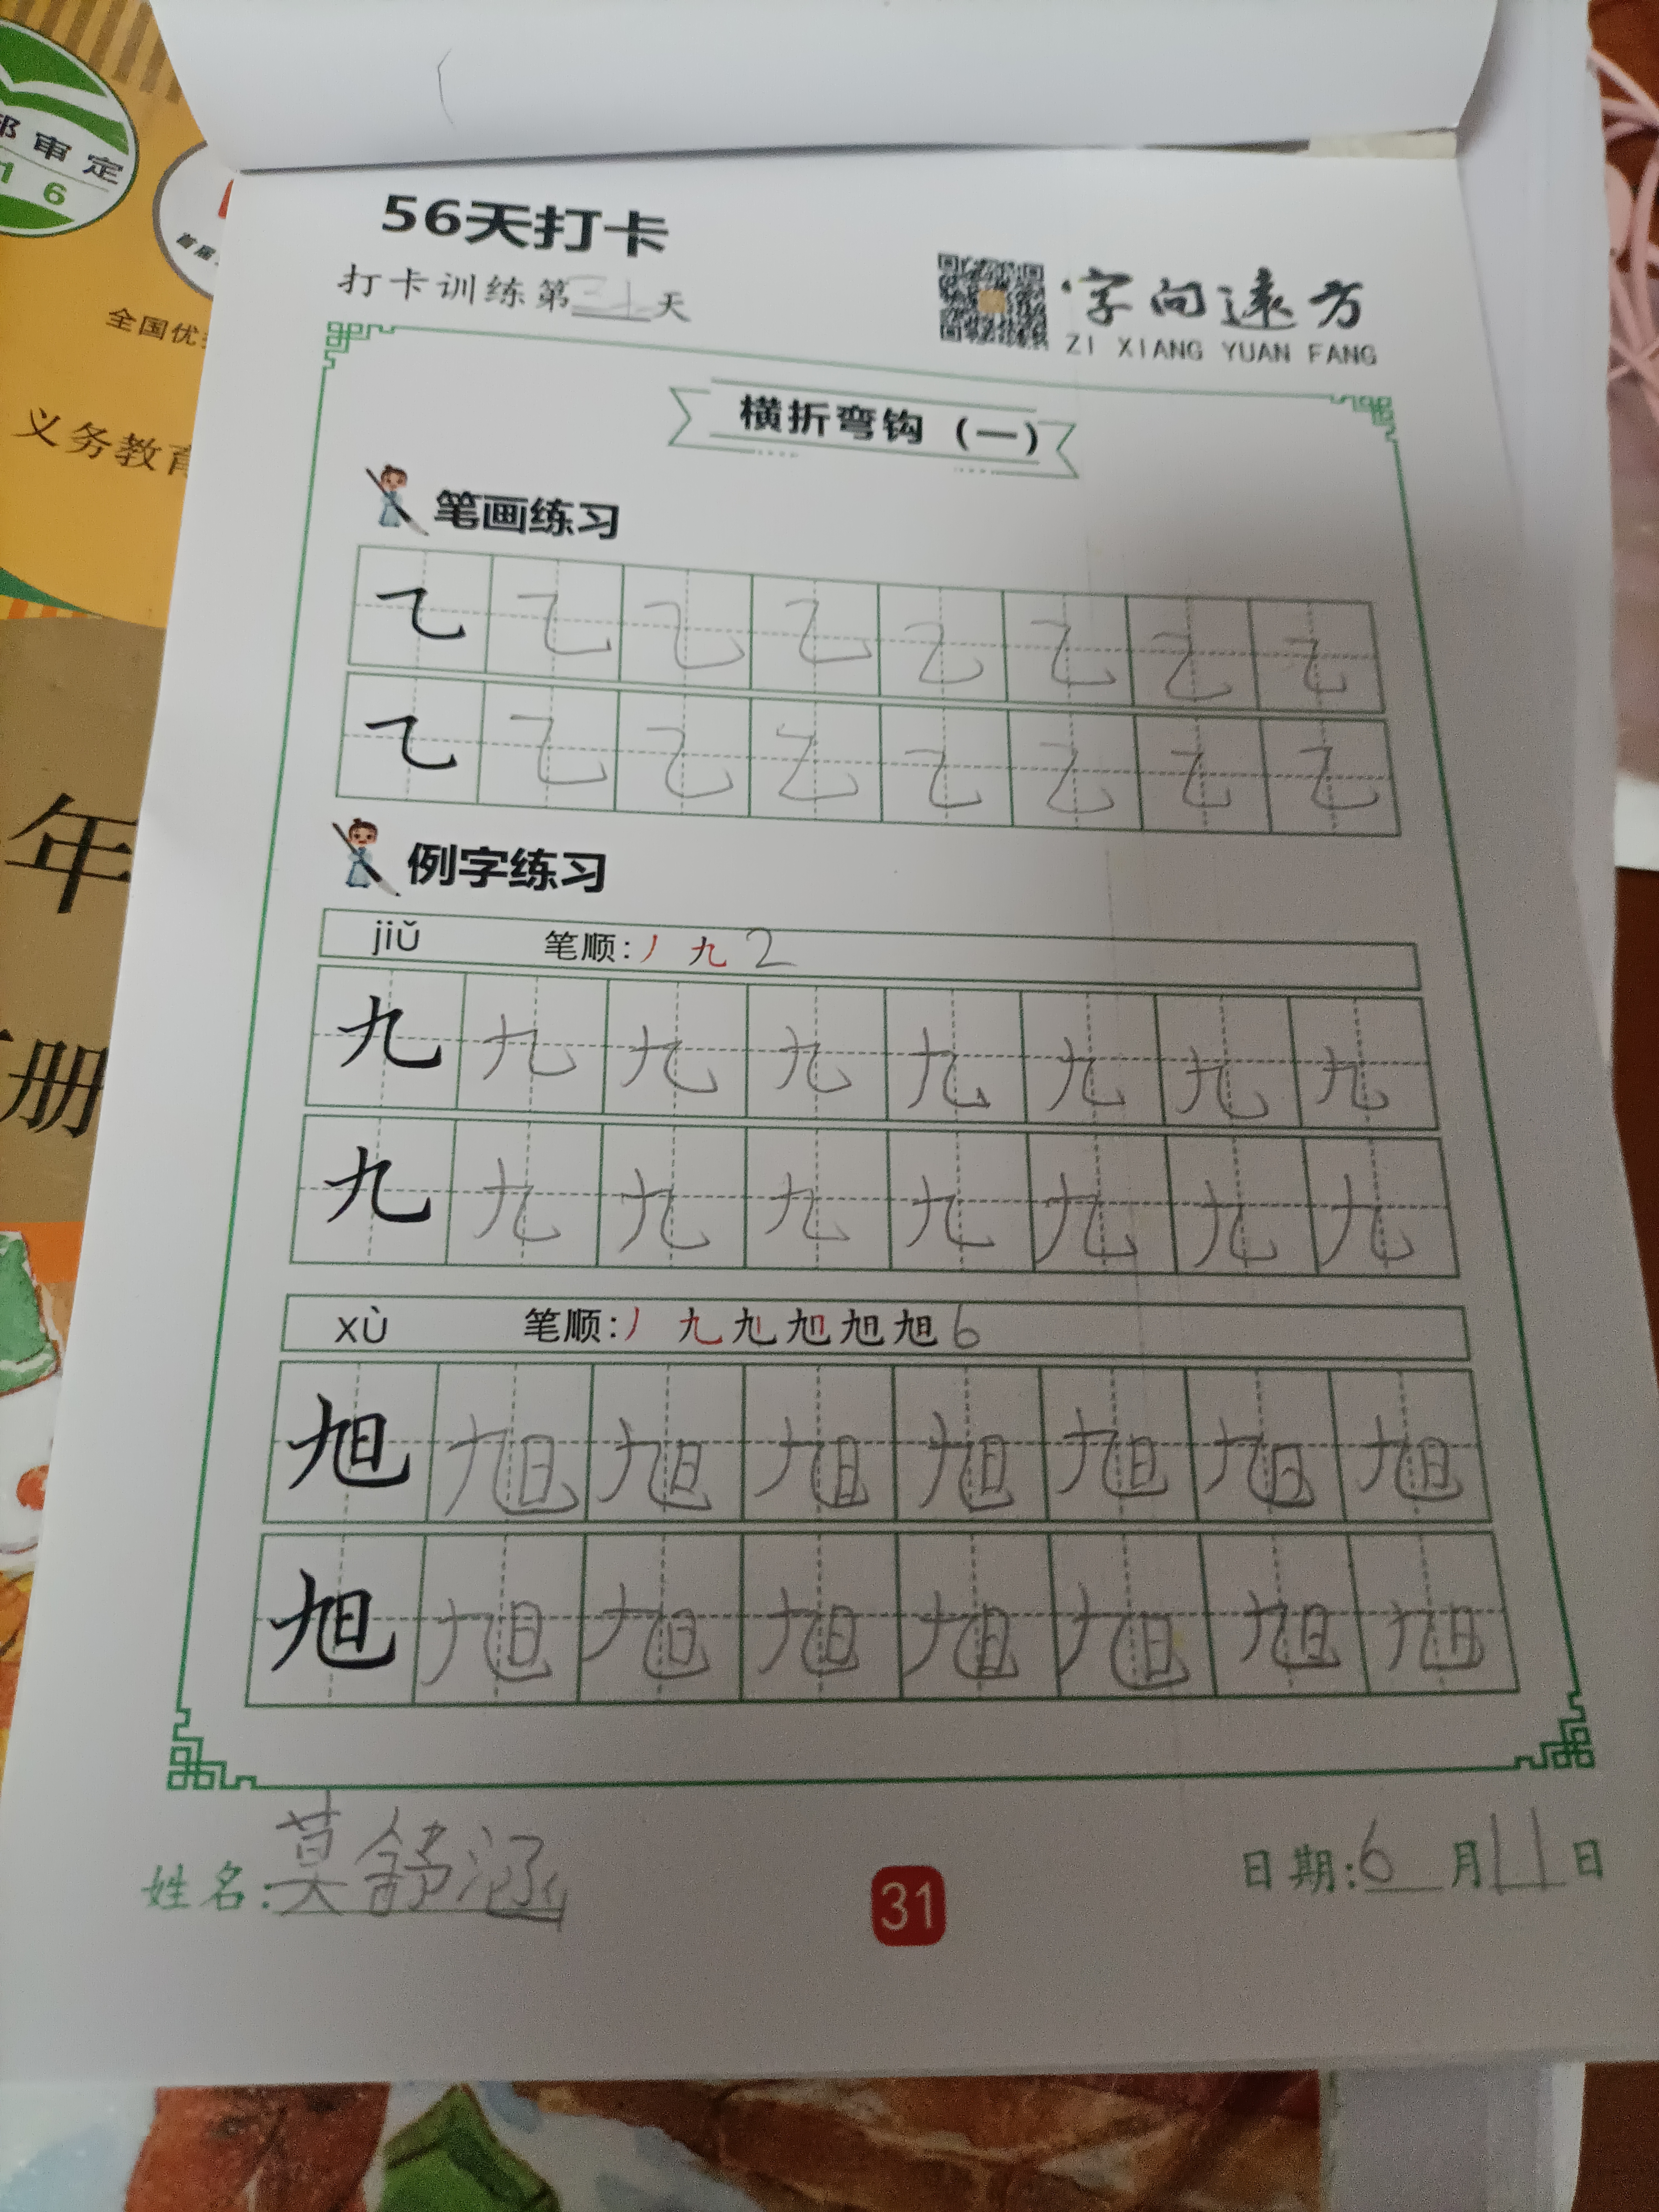 部审定
16
首届
全国优
义务教育
年
册
56天打卡
打卡训练第31天
字向远方
ZI XIANG YUAN FANG
横折弯钩（一）
笔画练习
乙 乙 乙 乙 乙 乙 乙 乙
乙 乙 乙 乙 乙 乙 乙 乙
例字练习
jiǔ 笔顺:丿 九 2
九 九 九 九 九 九 九 九
九 九 九 九 九 九 九 九
xù 笔顺:丿 九 旭 旭 旭 旭 6
旭 旭 旭 旭 旭 旭 旭 旭
旭 旭 旭 旭 旭 旭 旭 旭
姓名:莫舒涵
31
日期:6月11日